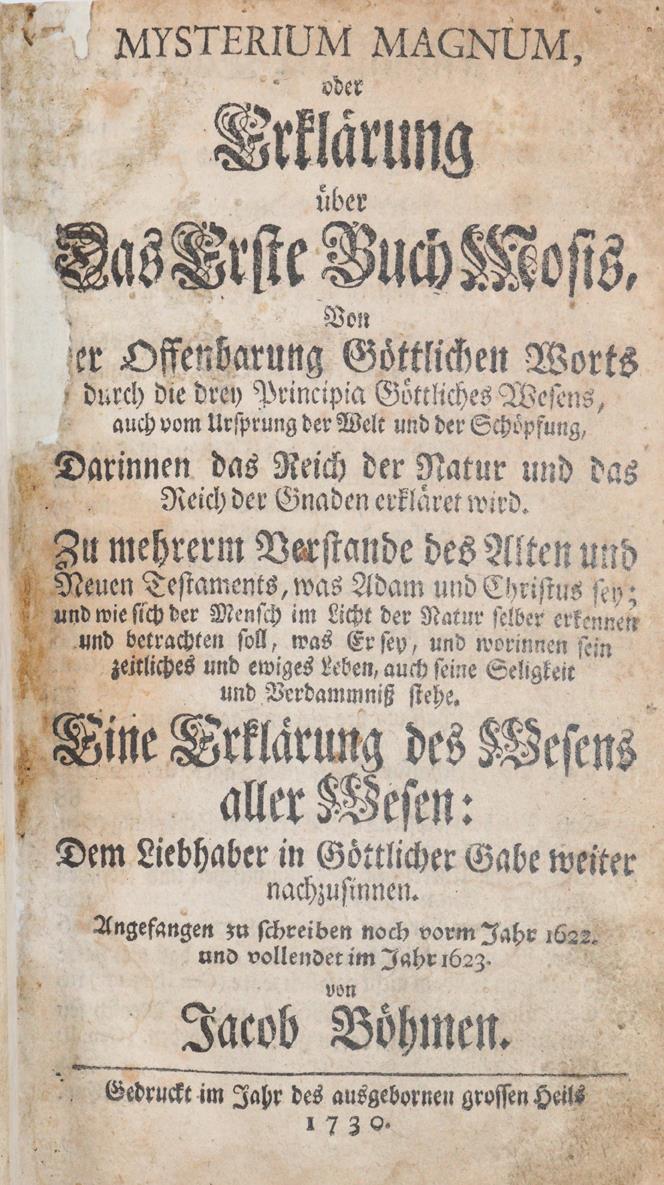 MYSTERIUM MAGNUM,
oder
Erklärung
über
Das Erste Buch Mosis,
Von
er Offenbarung Göttlichen Worts
durch die drey Principia Göttliches Wesens,
auch vom Ursprung der Welt und der Schöpfung,
Darinnen das Reich der Natur und das
Reich der Gnaden erkläret wird.
Zu mehrerm Verstande des Alten und
Neuen Testaments, was Adam und Christus sey;
und wie sich der Mensch im Licht der Natur selber erkennen
und betrachten soll, was Er sey, und worinnen sein
zeitliches und ewiges Leben, auch seine Seligkeit
und Verdammniß stehe.
Eine Erklärung des Wesens
aller Wesen:
Dem Liebhaber in Göttlicher Gabe weiter
nachzusinnen.
Angefangen zu schreiben noch vorm Jahr 1622.
und vollendet im Jahr 1623.
von
Jacob Böhmen.
Gedruckt im Jahr des ausgebornen grossen Heils
1730.